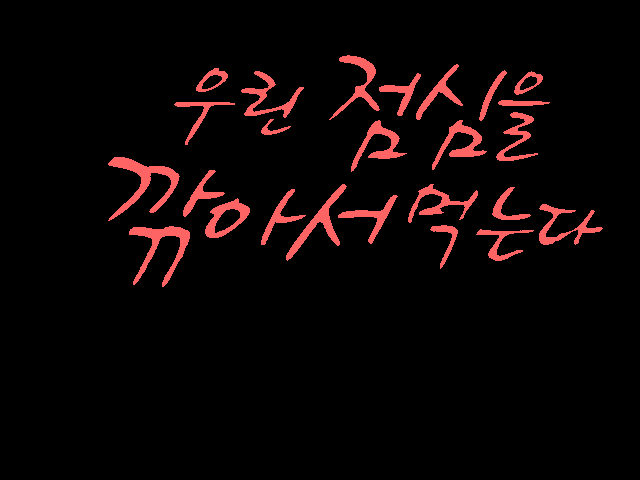 우린 점심을
깎아서 먹는다